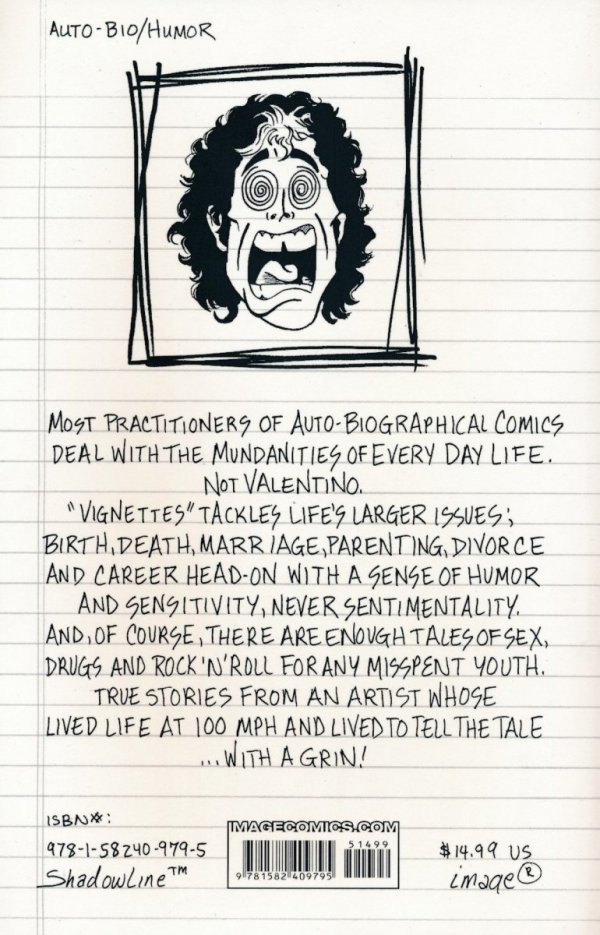 AUTO-BIO/HUMOR
MOST PRACTITIONERS OF AUTO-BIOGRAPHICAL COMICS
DEAL WITH THE MUNDANITIES OF EVERY DAY LIFE.
NOT VALENTINO.
"VIGNETTES" TACKLES LIFE'S LARGER ISSUES;
BIRTH, DEATH, MARRIAGE, PARENTING, DIVORCE
AND CAREER HEAD-ON WITH A SENSE OF HUMOR
AND SENSITIVITY, NEVER SENTIMENTALITY.
AND, OF COURSE, THERE ARE ENOUGH TALES OF SEX,
DRUGS AND ROCK 'N' ROLL FOR ANY MISSPENT YOUTH.
TRUE STORIES FROM AN ARTIST WHOSE
LIVED LIFE AT 100 MPH AND LIVED TO TELL THE TALE
...WITH A GRIN!
ISBN#:
978-1-58240-979-5
ShadowLine™
IMAGECOMICS.COM
51499
9 781582 409795
$14.99 US
image®